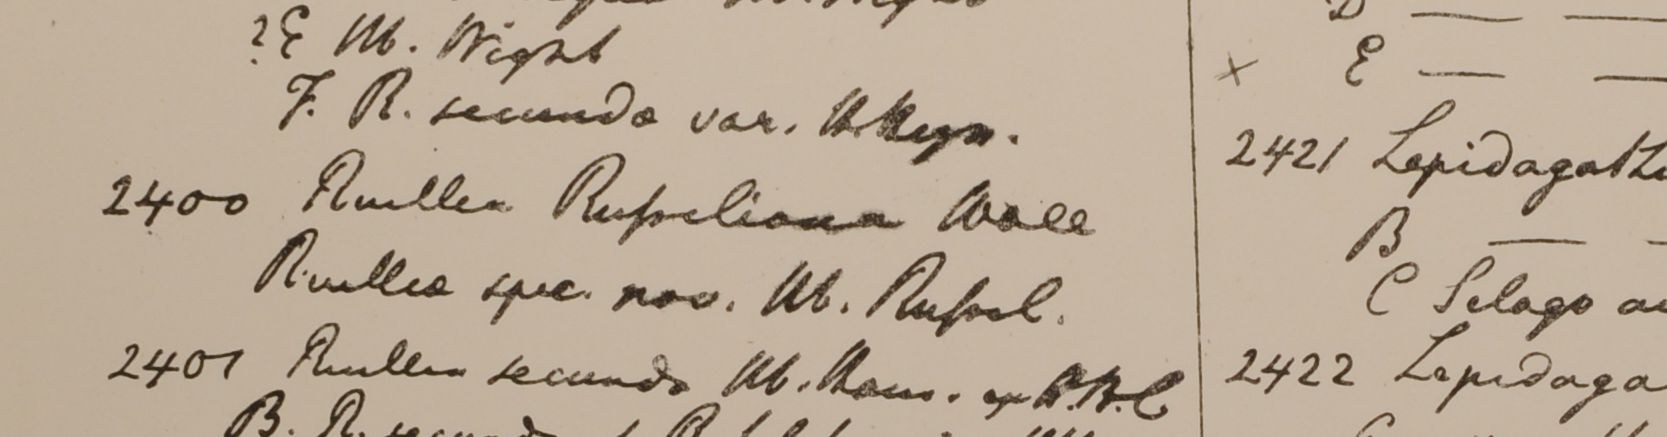 ?E Hb. Wight
F. R. secunda var. H. Heyn.
2400 Ruellia Russeliana Wall
Ruellia spec. nov. Hb. Russel.
2401 Ruellia secunda Hb. Ham.
B. R. secunda
D — —
× E — —
2421 Lepidagath
B — —
C Selago
2422 Lepidaga